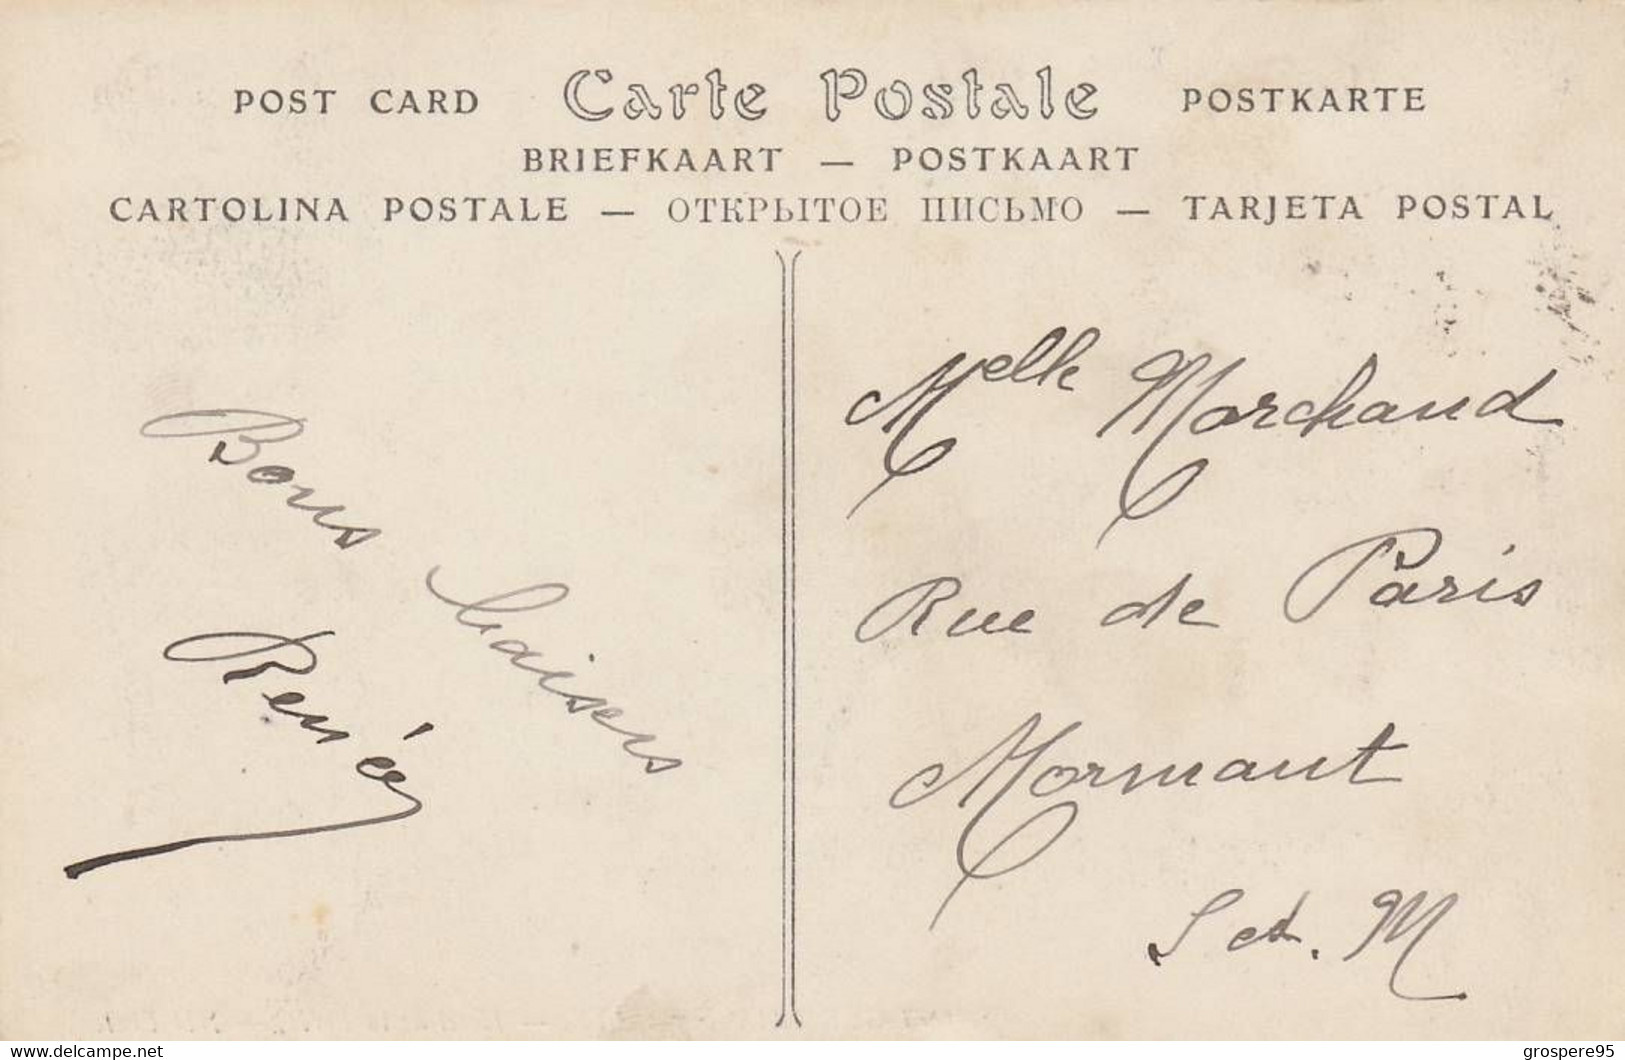 POST CARD Carte Postale POSTKARTE
BRIEFKAART — POSTKAART
CARTOLINA POSTALE — ОТКРЫТОЕ ПИСЬМО — TARJETA POSTAL
Bons baisers
René
Melle Marchand
Rue de Paris
Mormant
S et. M
www.delcampe.net
grospere95